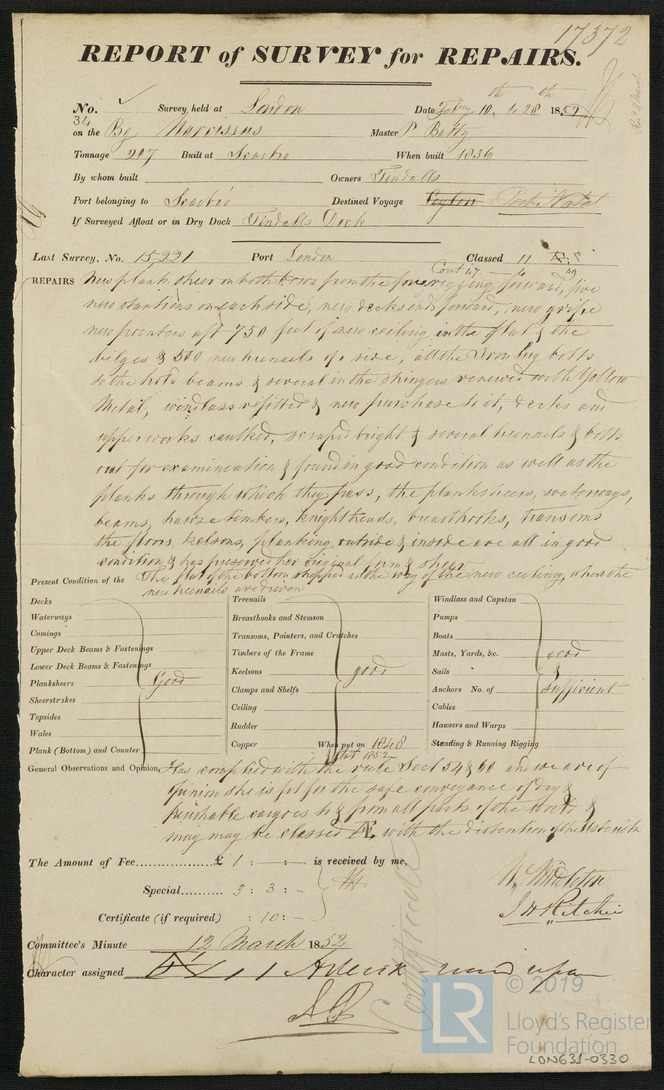 17372
REPORT of SURVEY for REPAIRS.
No. 34 Survey held at London Date Feby 10th & 28th 1852
on the Bg Narcissus Master P Batty
Tonnage 207 Built at Scarbro When built 1836
By whom built Owners Tindalls
Port belonging to Scarbro Destined Voyage Ceylon Port Natal
If Surveyed Afloat or in Dry Dock Tindalls Dock
Last Survey, No. 15221 Port London Classed 11
Cont 47
REPAIRS New plank sheer on both bows from the fore rigging forward, five
new stantions on each side, new decks and forward, new gripe
new pointers aft 750 feet of new ceiling in the flat & the
bilges & 500 new treenails of a side, all the Iron lug bolts
to the hold beams & several in the stringers renewed with Yellow
Metal, windlass refitted & new purchase to it, decks and
upper works caulked, scraped bright & several treenails & bolts
out for examination & found in good condition as well as the
planks through which they pass, the planksheers, waterways,
beams, hawse timbers, knightheads, breasthooks, transoms
the floors, kelsons, planking outside & inside are all in good
condition & has preserved her original form & sheer
The flat of the bottom stripped in the way of the new ceiling, where the
new treenails are driven
Present Condition of the
Decks
Waterways
Comings
Upper Deck Beams & Fastenings
Lower Deck Beams & Fastenings
Planksheers
Sheerstrakes
Topsides
Wales
Plank (Bottom) and Counter
Good
Treenails
Breasthooks and Stemson
Transoms, Pointers, and Crutches
Timbers of the Frame
Keelsons
Clamps and Shelfs
Ceiling
Rudder
Copper When put on 1848
good
Windlass and Capstan
Pumps
Boats
Masts, Yards, &c.
Sails
Anchors No. of
Cables
Hawsers and Warps
Standing & Running Rigging
good
&
sufficient
General Observations and Opinion, Has complied with the rule Sect 54 & 60 and we are of
opinion she is fit for the safe conveyance of dry &
perishable cargoes to & from all parts of the World &
may be classed Æ with the distinction of the Asterisk
The Amount of Fee £ 1 : — : — is received by me,
Special 3 : 3 : —
Certificate (if required) : 10 : —
W. Middleton
J H Ritchie
Committee's Minute 12 March 1852
Character assigned Asterisk
© 2019
LR
Lloyd's Register
Foundation
LON631-0330